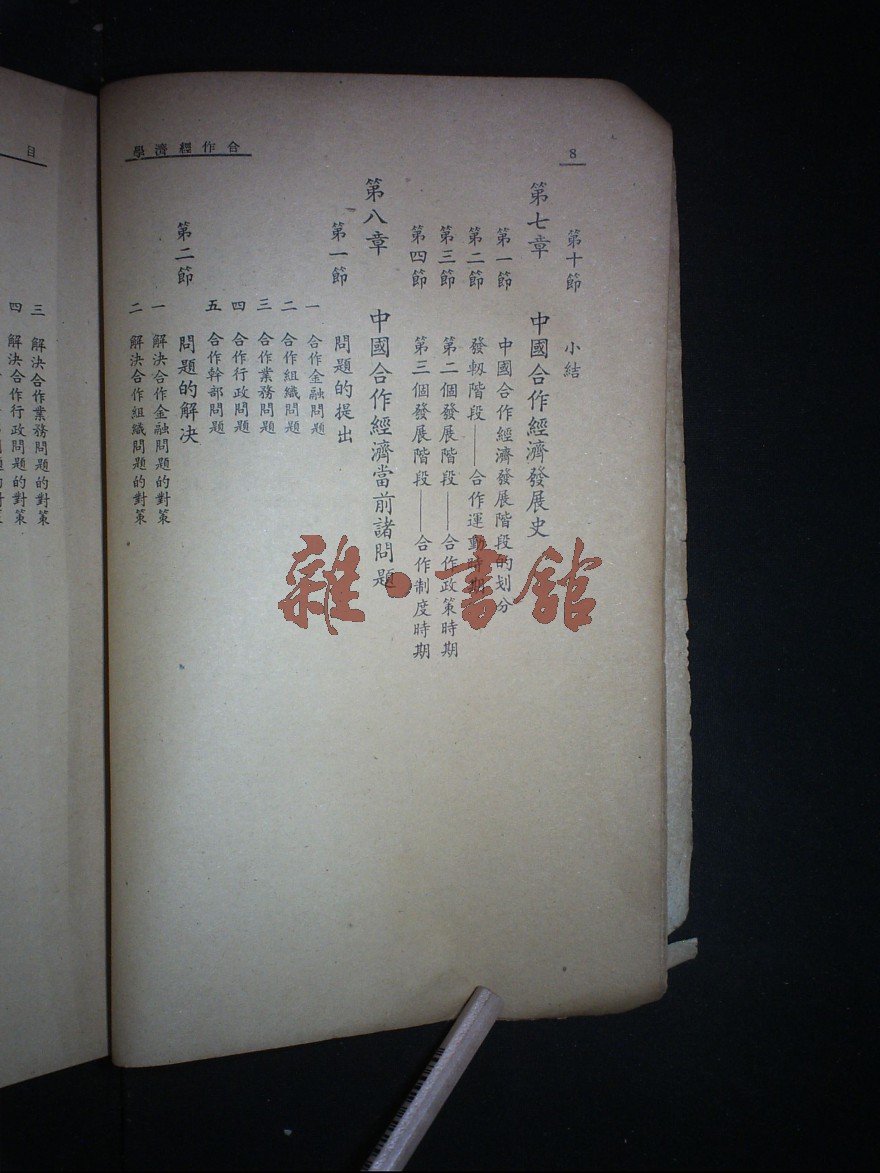 8
合作經濟學
第十節 小結
第七章 中國合作經濟發展史
第一節 中國合作經濟發展階段的划分
第二節 發軔階段——合作運動時期
第三節 第二個發展階段——合作政策時期
第四節 第三個發展階段——合作制度時期
第八章 中國合作經濟當前諸問題
第一節 問題的提出
一 合作金融問題
二 合作組織問題
三 合作業務問題
四 合作行政問題
五 合作幹部問題
第二節 問題的解決
一 解決合作金融問題的對策
二 解決合作組織問題的對策
目
三 解決合作業務問題的對策
四 解決合作行政問題的對策
雜·書館